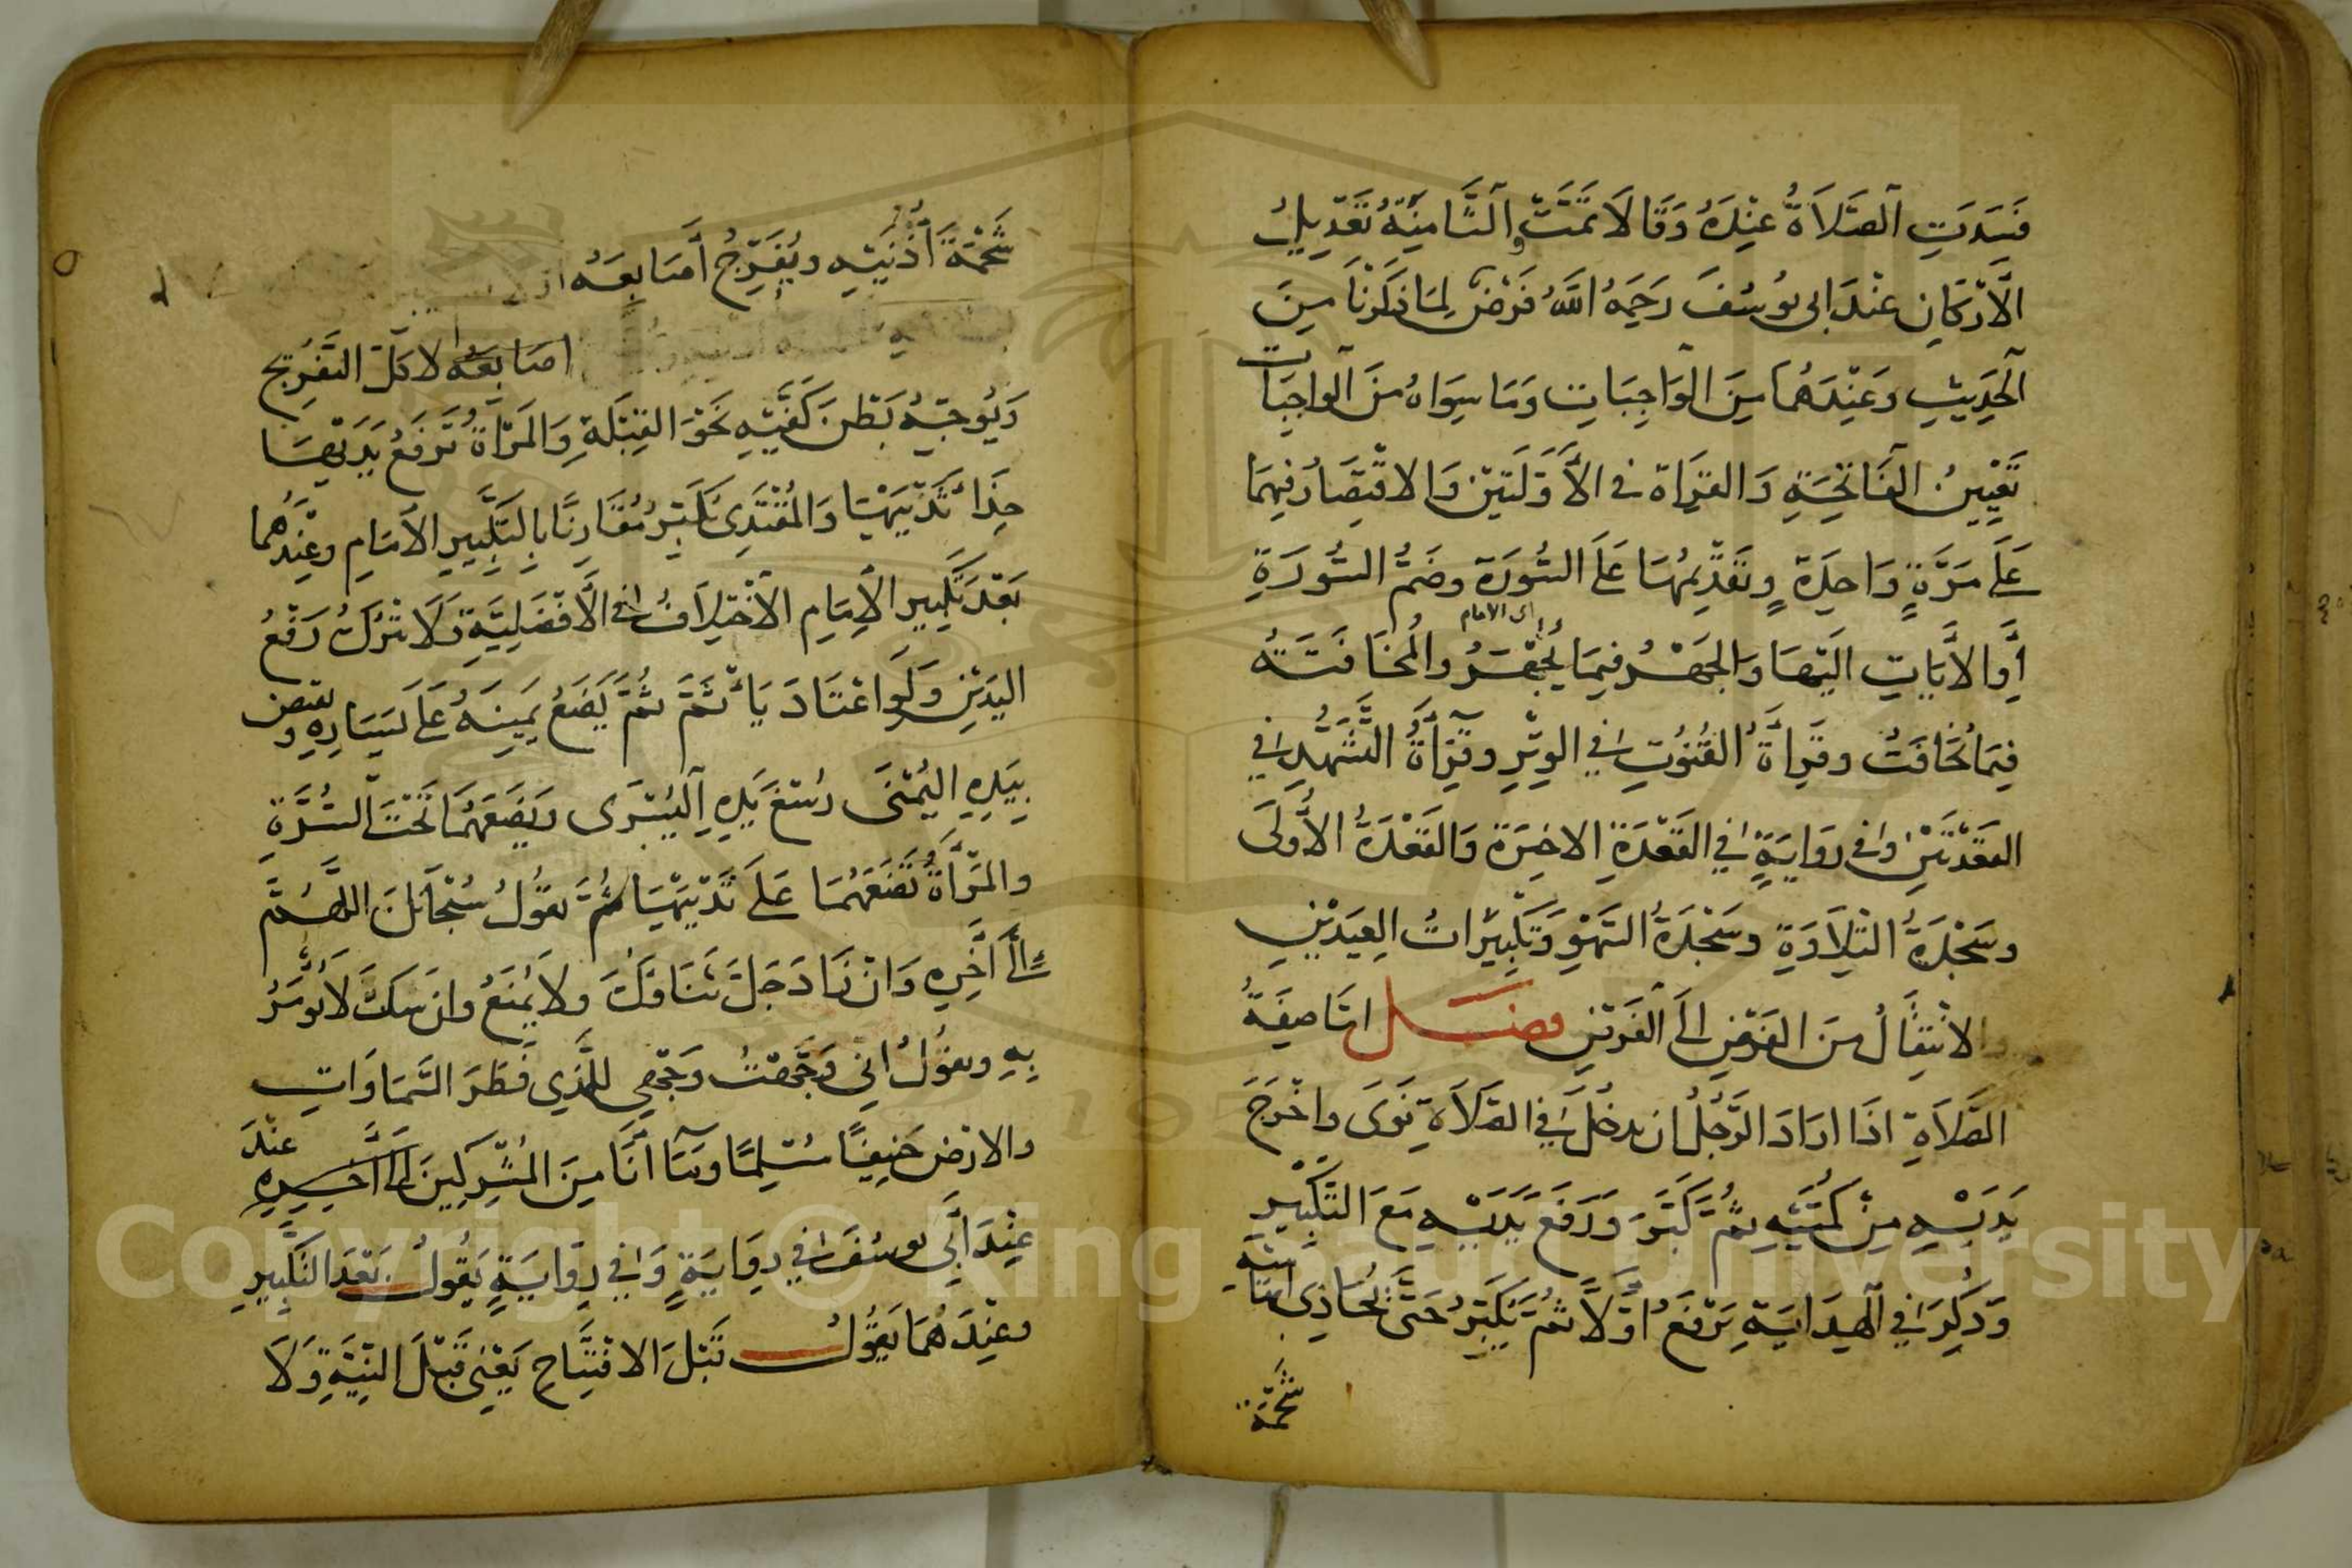 فَسَدَتِ الصَّلَاةُ عِنْدَهُ وَقَالَا تَمَّتْ وَالثَّامِنَةُ تَعْدِيلُ
الْأَرْكَانِ عِنْدَ ابى يُوسُفَ رَحِمَهُ اللَّهُ فَرْضٌ لِمَا ذَكَرْنَا مِنَ
الْحَدِيثِ وَعِنْدَهُمَا مِنَ الْوَاجِبَاتِ وَمَا سِوَاهُ مِنَ الْوَاجِبَات
تَعْيِينُ الْفَاتِحَةِ وَالقِرَاة فى الأُولَتَيْنِ وَالاقْتِصَارُ فِيهِمَا
عَلَى مَرَّةٍ وَاحِدَةٍ وتَقْدِيمُهَا عَلَى السُّورَةِ وضَمُّ السُّورَةِ
اى الامام
أَوِ الاَيَاتِ اليْهَا وَالجَهْرُ فِيمَا يُجْهَرُ والْمُخَافَتَةُ
فِيمَا يُخَافَتُ وقِرَاةُ القُنُوتِ فِي الوِتْرِ وقِرَاةُ التَّشَهُّدِ فِي
القَعْدَتَيْنِ وفى رِوَايَةٍ فِي القَعْدَةِ الاخِيرَةِ وَالقَعْدَةُ الأُولَى
وسَجْدَةُ التِّلَاوَةِ وسَجْدَةُ السَّهْوِ وَتَكْبِيرَاتُ العِيدَيْنِ
والانْتِقَالُ مِنَ الفَرْضِ الَى الْفَرْضِ فصل امّا صِفَةُ
الصَّلَاةِ اذَا ارَادَ الرَّجُلُ ان يدخُلَ فِي الصَّلَاةِ نَوَى واخْرَجَ
يَدَيْهِ مِنْ كُمَّيْهِ ثُمَّ كَبَّرَ وَرَفَعَ يَدَيْهِ مَعَ التَّكْبِيرِ
وَذُكِرَ فِي الْهِدَايَةِ يَرْفَعُ اوَّلاً ثُمَّ يُكَبِّرُ حَتَّى يُحَاذِىَ ابْهَامَيْهِ
شَحْمَةَ
شَحْمَةَ أُذُنَيْهِ ويُفَرِّجُ أَصَابِعَهُ
اصَابِعَهُ لا كلَّ التَّفْرِيجِ
وَيُوجِّهُ بَطْنَ كَفَّيْهِ نَحْوَ القِبْلَةِ وَالمَرْأَةُ تَرْفَعُ يَدَيْهَا
حِذَاءَ ثَدْيَيْهَا وَالمُقْتَدِى يُكَبِّرُ مُقَارِنًا بِالتَّكْبِيرِ الأمَامِ وعِنْدَهُمَا
بَعْدَ تَكْبِيرِ الأِمَامِ الاخْتِلَافُ فى الأَفْضَلِيَّةِ وَلَا يَتْرُكُ رَفْعُ
اليَدَيْنِ وَلَوِ اعْتَادَ يَأْثَمَ ثُمَّ يَضَعُ يَمِينَهُ عَلَى يَسَارِهِ وَيقبض
بِيَدِهِ اليُمْنَى رُسْغَ يَدِهِ الْيُسْرَى ويَضَعَهُمَا تَحْتَ السُّرَّةِ
والمَرْأَةُ تَضَعَهُمَا عَلَى ثَدْيَيْهَا ثُمَّ يقُولُ سُبْحَانَكَ اللَّهُمَّ
الَى آخِرِهِ وَانْ زَادَ جَلَّ ثَنَاؤُكَ ولَا يُمْنَعُ وان سَكَتَ لَا يُومَرُ
بِهِ ويقُولُ انى وَجَّهْتُ وَجْهِىَ لِلَّذِي فَطَرَ السَّمَاوَاتِ
والارْضَ حَنِيفًا مُسْلِمًا ومَا انَا مِنَ المُشْرِكِينَ الى آخِرِهِ عِنْدَ
عِنْدَ أَبِي يوسُفَ فِي رِوَايَةٍ وَفِي رِوَايَةٍ يَقُولُ بَعْدَ التَّكْبِيرِ
وعِنْدَهُمَا يَقُولُ قَبْلَ الافْتِتَاحِ يَعْنِى قَبْلَ النِّيَّةِ وَلَا